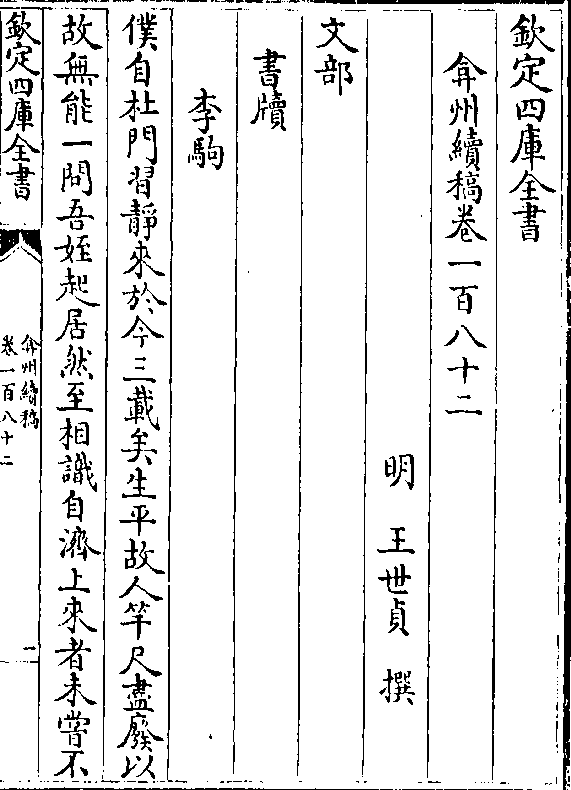 欽定四庫全書
弇州續稿卷一百八十二
明　王世貞　撰
文部
書牘
李駒
僕自杜門習靜來於今三載矣生平故人竿尺盡廢以
故無能一問吾姪起居然至相識自濟上來者未嘗不
欽定四庫全書
弇州續稿
卷一百八十二
一